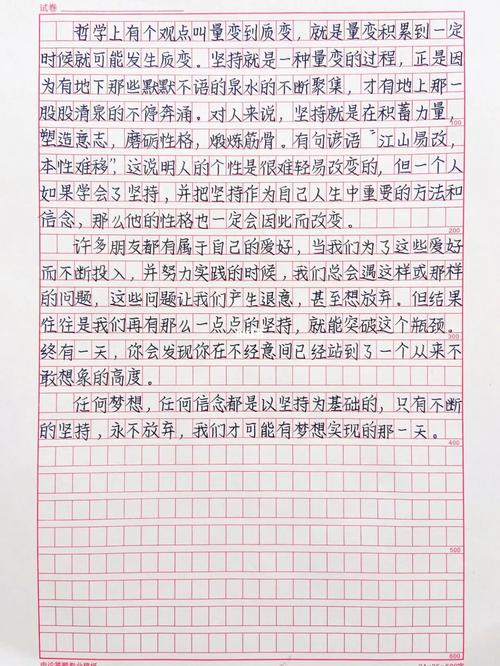 试卷
哲学上有个观点叫量变到质变，就是量变积累到一定
时候就可能发生质变。坚持就是一种量变的过程，正是因
为有地下那些默默不语的泉水的不断聚集，才有地上那一
股股清泉的不停奔涌。对人来说，坚持就是在积蓄力量，
100
塑造意志，磨砺性格，煅炼筋骨。有句谚语“江山易改，
本性难移”，这说明人的个性是很难轻易改变的，但一个人
如果学会了坚持，并把坚持作为自己人生中重要的方法和
信念，那么他的性格也一定会因此而改变。
200
许多朋友都有属于自己的爱好，当我们为了这些爱好
而不断投入，并努力实践的时候，我们总会遇这样或那样
的问题，这些问题让我们产生退意，甚至想放弃。但结果
往往是我们再有那么一点点的坚持，就能突破这个瓶颈。
300
终有一天，你会发现你在不经意间已经站到了一个从来不
敢想象的高度。
任何梦想，任何信念都是以坚持为基础的，只有不断
的坚持，永不放弃，我们才可能有梦想实现的那一天。
400
500
600